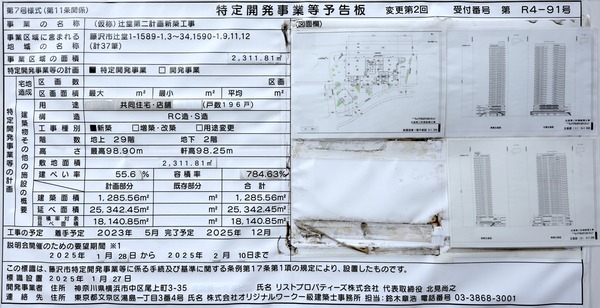 第7号様式(第11条関係)
特定開発事業等予告板 変更第2回 受付番号 第 R4-91号
事業の名称 (仮称)辻堂第二計画新築工事
事業区域に含まれる地域の名称 藤沢市辻堂1-1589-1,3~34,1590-1,9,11,12 (計37筆)
事業区域の面積 2,311.81㎡
特定開発事業等の計画 ■特定開発事業 □開発事業
特定開発事業等の計画
宅地造成 区画数 区画
区画面積 最大 ㎡ 最小 ㎡ 平均 ㎡
建築物その他の施設の概要
用途 共同住宅・店舗 (戸数196戸)
構造 RC造・S造
工事種別 ■新築 □増築・改築 □用途変更
階数 地上 29階 地下 2階
高さ 最高98.90m 軒高98.25m
敷地面積 2,311.81㎡
建ぺい率 55.6% 容積率 784.63%
計画部分 既存部分 合計
建築面積 1,285.56㎡ ㎡ 1,285.56㎡
延べ面積 25,342.45㎡ ㎡ 25,342.45㎡
容積率対象延べ面積 18,140.85㎡ ㎡ 18,140.85㎡
工事の予定 着手予定 2023年 5月 完了予定 2025年 12月
説明会開催のための要望期間 ※1
2025年 1月 28日 から 2025年 2月 10日まで
この標識は、藤沢市特定開発事業等に係る手続及び基準に関する条例第17条第1項の規定により、設置したものです。
標識設置 2025年 1月27日
開発事業者 住所 神奈川県横浜市中区尾上町3-35 氏名 リストプロパティーズ株式会社 代表取締役 北見尚之
連絡先 住所 東京都文京区湯島一丁目3番4号 氏名 株式会社オリジナルワークー級建築士事務所 担当者:鈴木章浩 電話番号 03-3868-3061
図面欄